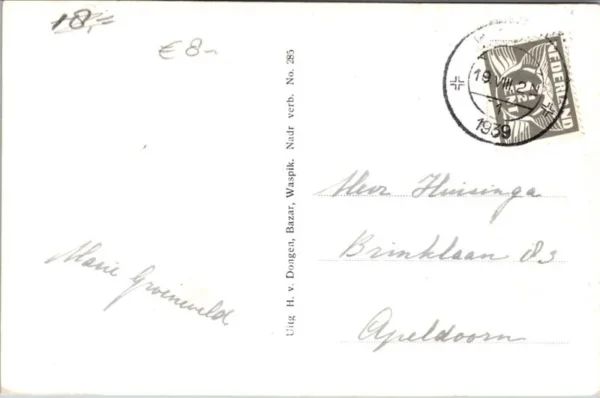 18,=
€ 8-
Uitg H. v. Dongen, Bazar, Waspik. Nadr verb. No. 285
NEDERLAND
19 VIII 2 N
1
1939
Heer Huisinga
Brinklaan 183
Apeldoorn
Marie Groeneveld